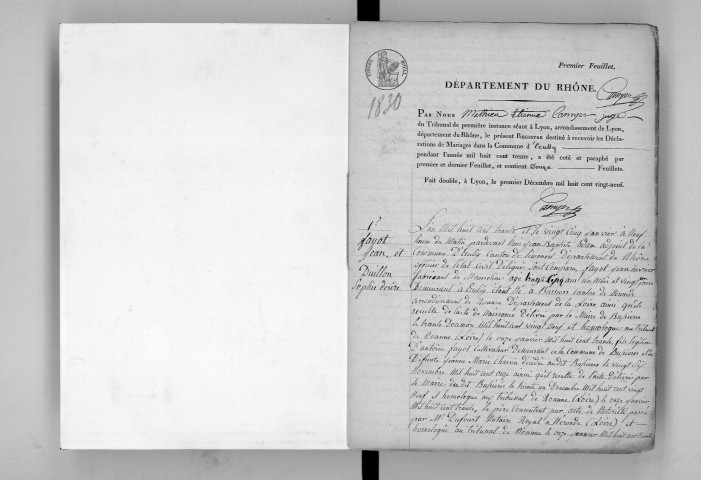 Premier Feuillet.
1830
DÉPARTEMENT DU RHÔNE.
Camyer
PAR NOUS Mathieu Etienne Camyer juge
du Tribunal de première instance séant à Lyon, arrondissement de Lyon,
département du Rhône, le présent REGISTRE destiné à recevoir les Décla-
rations de Mariages dans la Commune d'Ecully
pendant l'année mil huit cent trente, a été coté et paraphé par
premier et dernier Feuillet, et contient Douze Feuillets.
Fait double, à Lyon, le premier Décembre mil huit cent vingt-neuf.
Camyer
1r
fayot
Jean et
Duillon
Sophie
L'an Mil huit cent trente et le vingt Cinq janvier à Neuf
heure du Matin pardevant Nous Jean Baptiste adjoint de la
Commune d'Ecully Canton de Limonest Département du Rhône
officier de l'état Civil Délégué Sont Comparu fayot Jean ouvrier
fabricant de agé vingt Cinq ans un Mois et vingt jours
Demeurant à Ecully étant Né à Bussieres Canton de Néronde
arrondissement de Roanne Département de la Loire ainsi qu'il
resulte de l'acte de Naissance Délivré par le Maire de Bussieres
le trente Décembre Mil huit cent vingt Neuf et homologué au tribunal
de Roanne (Loire) le onze janvier Mil huit cent trente, fils légitime
D'antoine fayot Cultivateur Demeurant en la Commune de Bussieres et de
Défunte Jeanne Marie décédée audit Bussieres le vingt Six
Novembre Mil huit cent onze ainsi qu'il resulte de l'acte Délivré par
le Maire du dit Bussieres le trente un Décembre Mil huit cent vingt
Neuf et homologué au tribunal de Roanne (Loire) le onze janvier
Mil huit cent trente, le père Consentant par acte de Notoriété passé
par Me Dufourt Notaire Royal à Néronde (Loire) et
homologué au tribunal de Roanne le onze janvier Mil huit cent trente